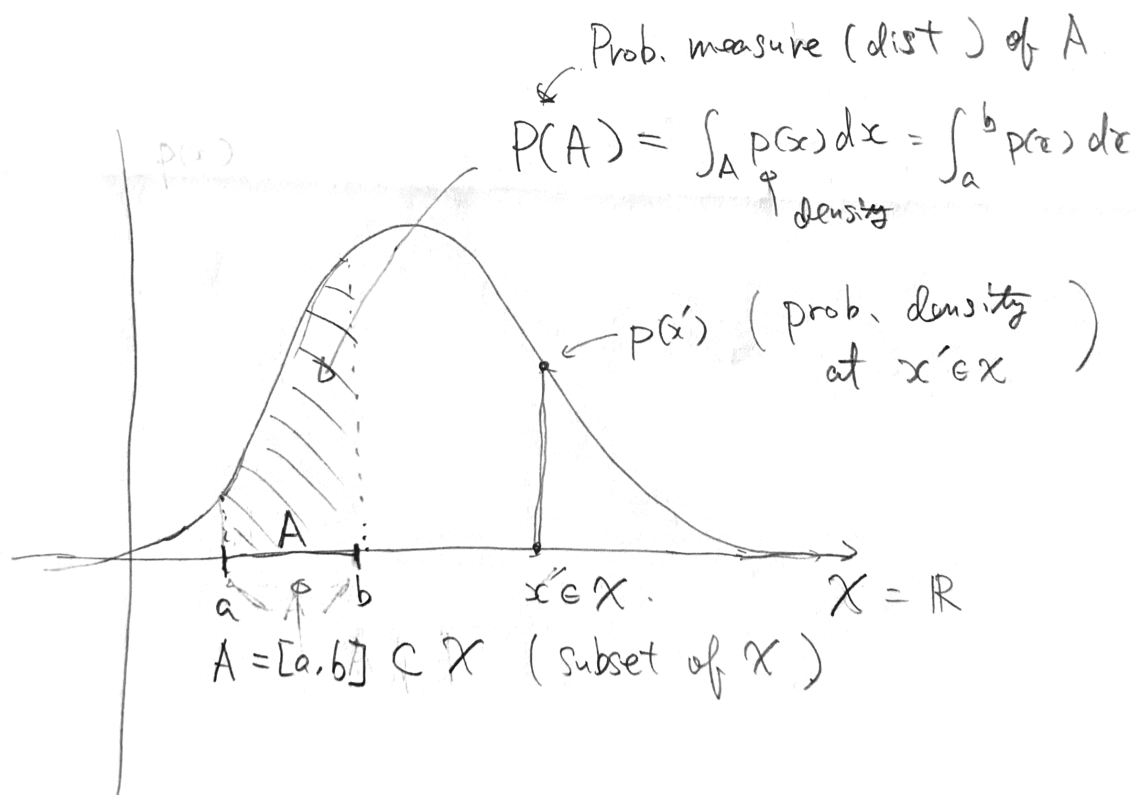 Prob. measure (dist) of A
P(A) = ∫_A p(x)dx = ∫_a^b p(x)dx
density
p(x)
p(x′) (prob. density
at x′ ∈ X)
A
a b
x′ ∈ X.
X = ℝ
A = [a, b] ⊂ X (subset of X)